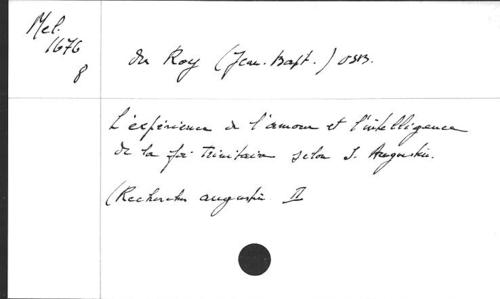 Mel.
1676
8
du Roy (Jean-Bapt.) OSB.
L'expérience de l'amour et l'intelligence
de la foi trinitaire selon S. Augustin.
(Recherches augustin II